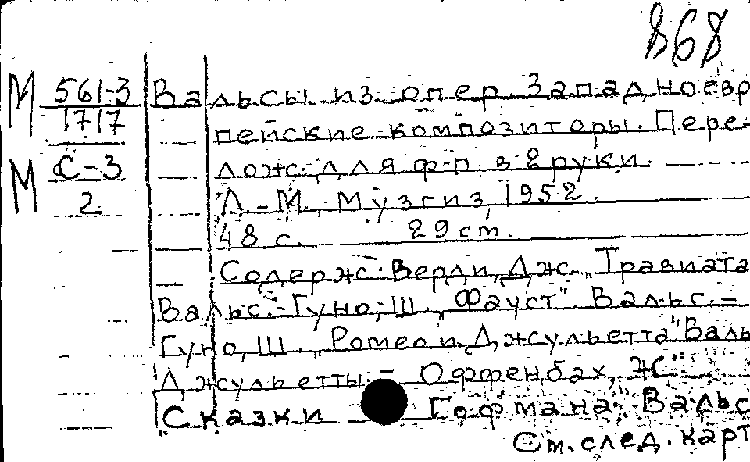 868
М 561-3 Вальсы из опер Западноевро
1717 пейские композиторы. Пере-
М С-3 лож. для ф-п в 2 руки.
2 Л.-М., Музгиз, 1952.
48 с. 29 cm.
Содерж: Верди, Дж. "Травиата
Вальс.-Гуно, Ш. "Фауст" Вальс.-
Гуно, Ш. "Ромео и Джульетта" Валь
Джульетты.- Оффенбах, Ж.
"Сказки Гофмана". Вальс
См. след. карт